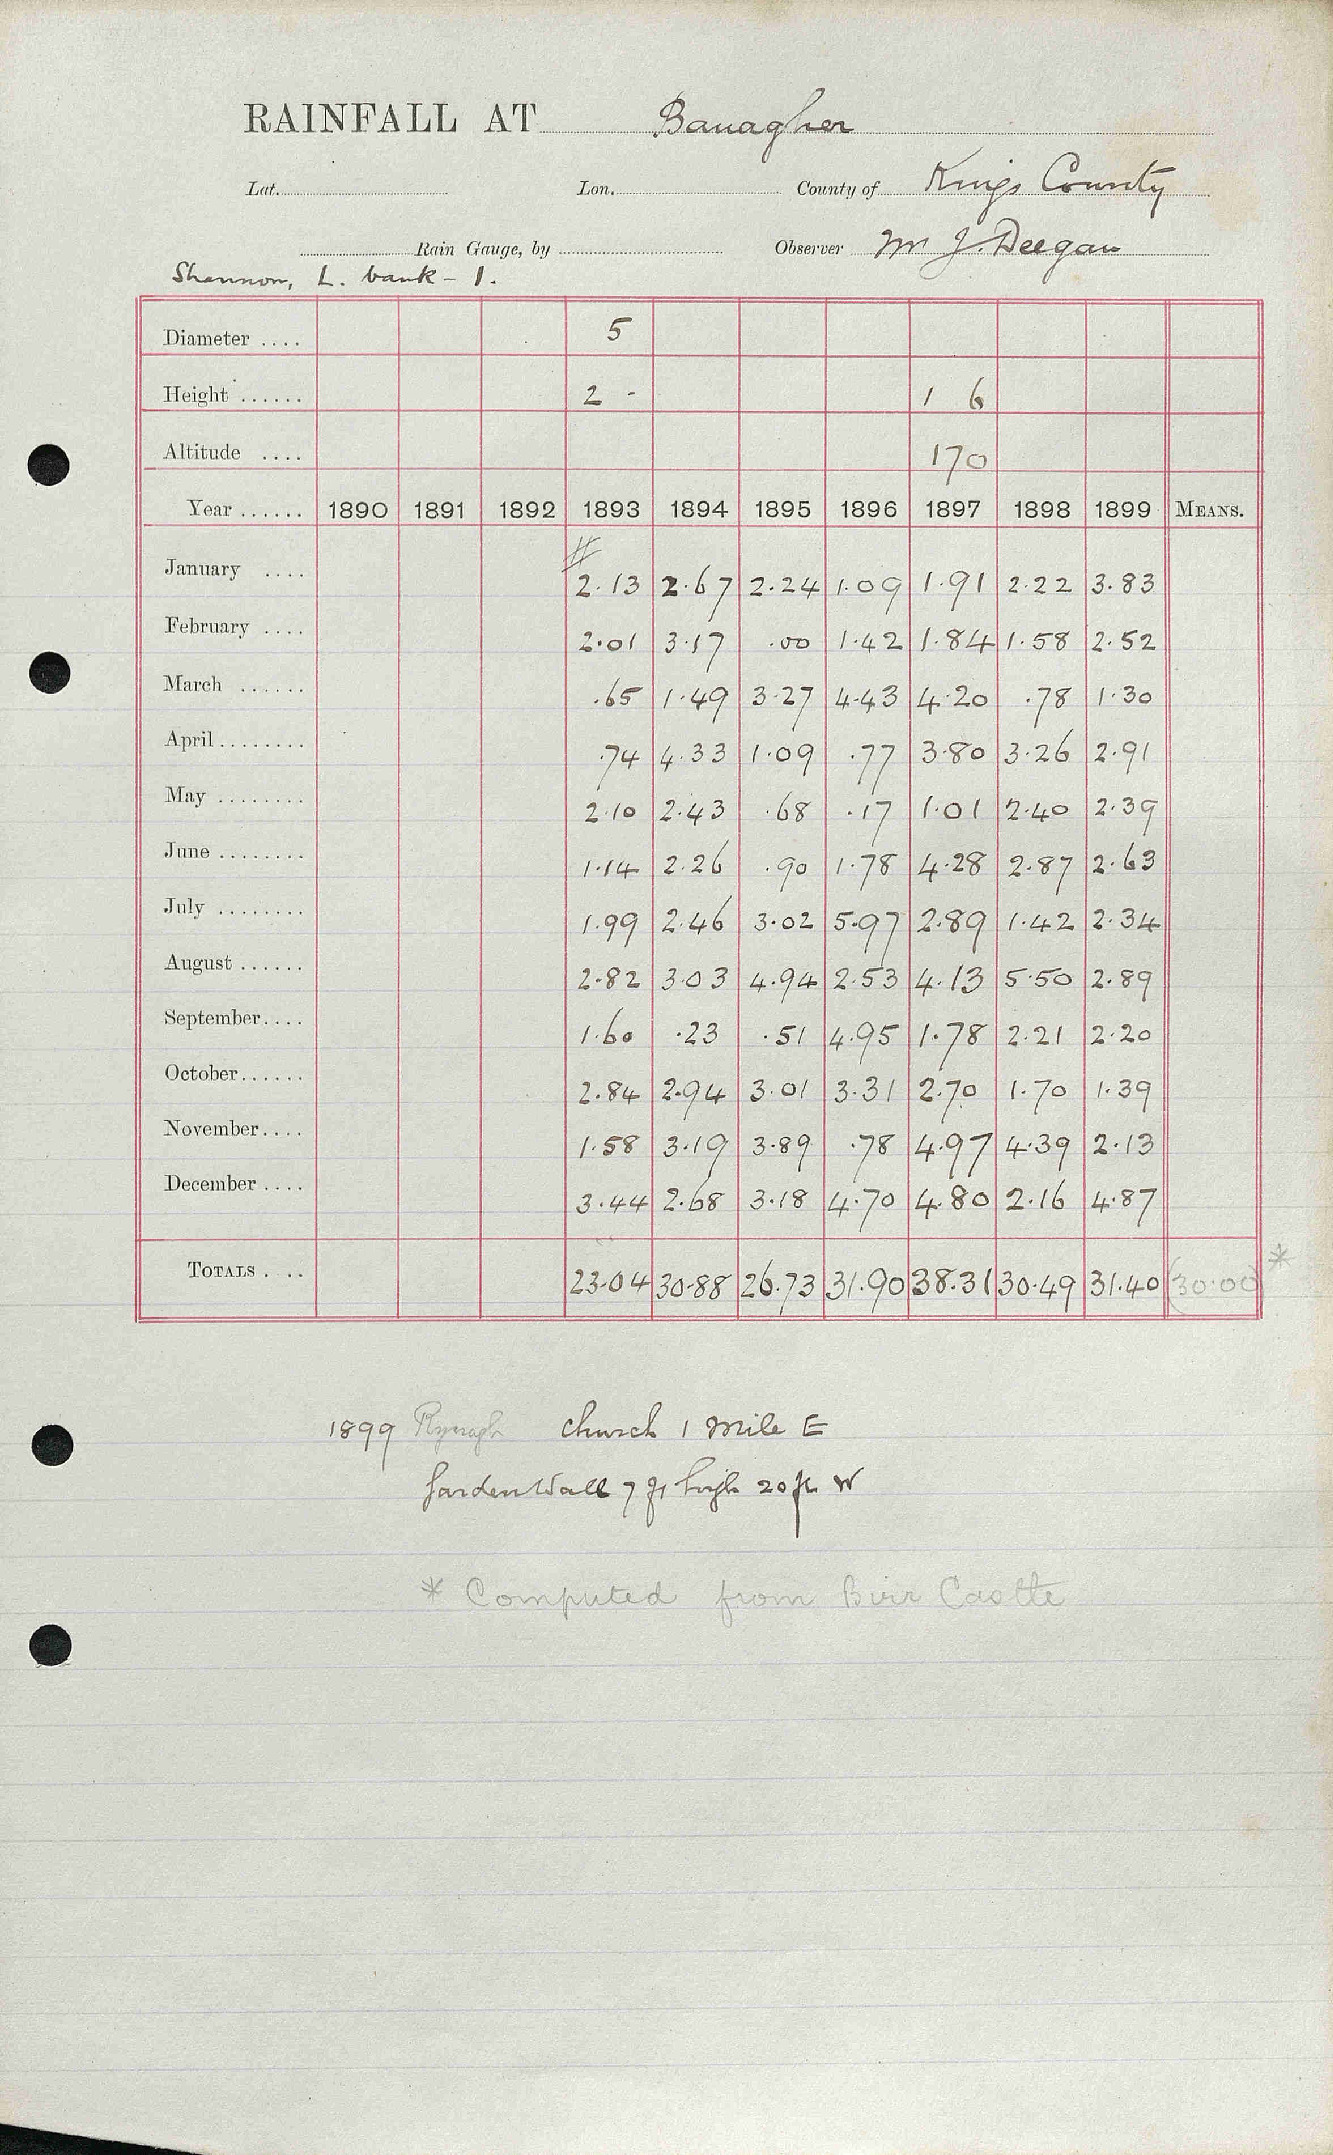 RAINFALL AT Banagher
Lat. Lon. County of Kings County
Rain Gauge, by Observer Mr J. Deegan
Shannon, L. bank - 1.
Diameter .... 5
Height ...... 2 - 1 6
Altitude .... 170
Year ...... 1890 1891 1892 1893 1894 1895 1896 1897 1898 1899 MEANS.
January .... 2.13 2.67 2.24 1.09 1.91 2.22 3.83
February .... 2.01 3.17 .00 1.42 1.84 1.58 2.52
March ...... .65 1.49 3.27 4.43 4.20 .78 1.30
April ........ .74 4.33 1.09 .77 3.80 3.26 2.91
May ........ 2.10 2.43 .68 .17 1.01 2.40 2.39
June ........ 1.14 2.26 .90 1.78 4.28 2.87 2.63
July ........ 1.99 2.46 3.02 5.97 2.89 1.42 2.34
August ...... 2.82 3.03 4.94 2.53 4.13 5.50 2.89
September.... 1.60 .23 .51 4.95 1.78 2.21 2.20
October...... 2.84 2.94 3.01 3.31 2.70 1.70 1.39
November.... 1.58 3.19 3.89 .78 4.97 4.39 2.13
December .... 3.44 2.68 3.18 4.70 4.80 2.16 4.87
TOTALS . .. 23.04 30.88 26.73 31.90 38.31 30.49 31.40 (30.00) *
1899 church 1 Mile E
Garden Wall 7 ft high 20 ft W
* Computed from Birr Castle